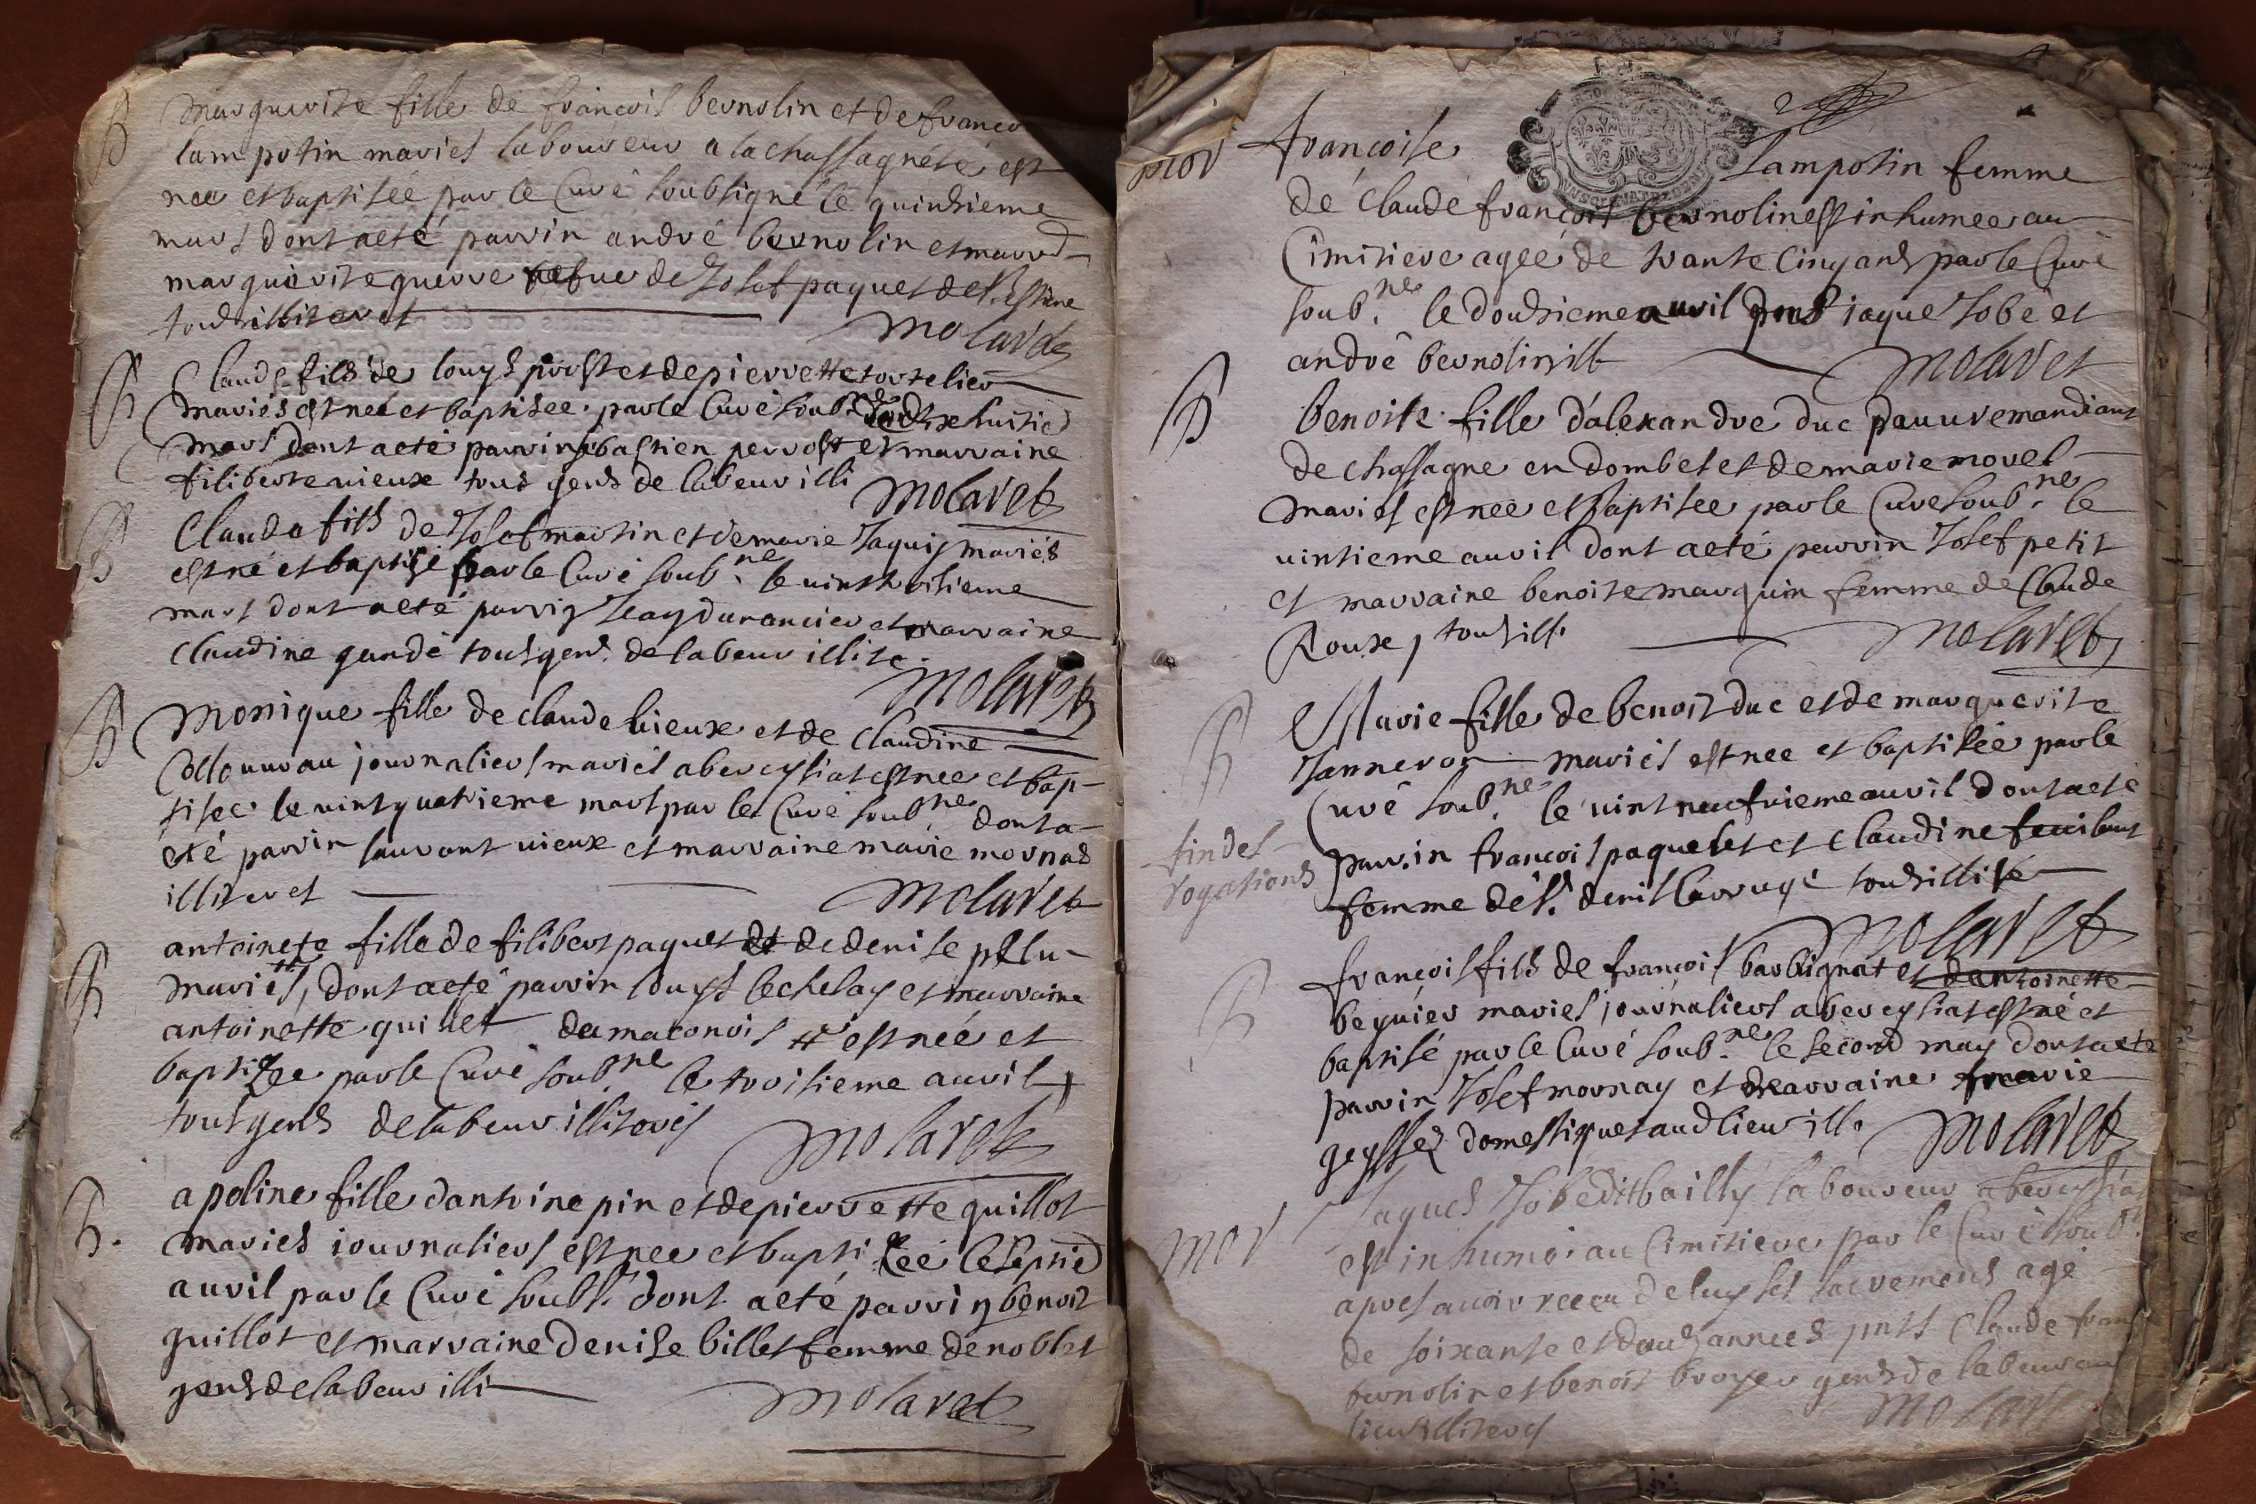 B
marguerite fille de francois bernolin et de franco
lampotin mariés laboureur a la chassagnéte est
nee et baptisée par le Curé soubsigné le quinsieme
mars dont a eté parrin andré bernolin et marr
marguerite guerre vefue de Josef paquet de
tous illiteret
molaret
B
Claude fils de louys prost et de pierrette
mariés est neé et baptisee par le Curé soub. dixhuitie
mars dont a eté parrin sebastien perrost et marraine
filiberte uieux tous gens de labeur illi
molaret
B
Claude fils de Josef martin et de marie Jaquis mariés
est né et baptisé par le Curé soub.ne le uint
mars dont a eté parrin Jean durancier et marraine
Claudine gandé tous gens de labeur illite
molaret
B
monique fille de claude uieux et de Claudine
journaliers mariés a bereysiat est nee et bap-
tisee le uintquatrieme mars par le Curé soub.ne dont a
eté parrin laurant uieux et marraine marie mornas
illiteret
molaret
B
antoinete fille de filibert paquet et de denise pelu-
mariés, dont a eté parrin louys lechelay et marraine
antoinette guillet de maconois # est née et
baptisee par le Curé soub.ne le troisieme auril
tous gens de labeur illiterés
molaret
B.
apoline fille d antoine pin et de pierrette guillot
mariés iournaliers est nee et baptisée le septie
auril par le Curé soubs. dont a eté parrin benoit
guillot et marraine denise billet femme de noblet
gens de labeur illi
molaret
mor
françoise lampotin femme
de claude françois bernolin est inhumee au
Cimitiere agée de trante cinq ans par le Curé
soub.ne le dousieme auril pnts iaque Jobe et
andré bernolin ill
molaret
B
benoite fille d'alexandre duc pauure mandiant
de chassagne en dombes et de marie morel
mariés est nee et baptisee par le Curé soub.ne le
uintieme auril dont a eté parrin Josef petit
et marraine benoite marquin femme de Claude
Roux, tous ill.
molaret
B
Marie fille de benoit duc et de marguerite
Janneron mariés est nee et baptisée par le
Curé soub.ne le uintneufuieme auril dont a eté
parrin francois paquelet et Claudine
femme de denis tous illite
molaret
fin des
rogations
B
françois fils de françois barbignat et d'antoinette
beguier mariés journaliers a bereysiat est né et
baptisé par le Curé soub.ne le second may dont a eté
parrin Josef mornay et marraine marie
domestiques aud lieu ill.
molaret
mor
Jaques Jobe dit bailly laboureur a bereysiat
est inhumé au Cimitiere par le Curé soub
apres auoir receu de luy les sacremens agé
de soixante et douz années pnts Claude fran
bernolin et benoit broyer gens de labeur au
lieu illiterés
molar